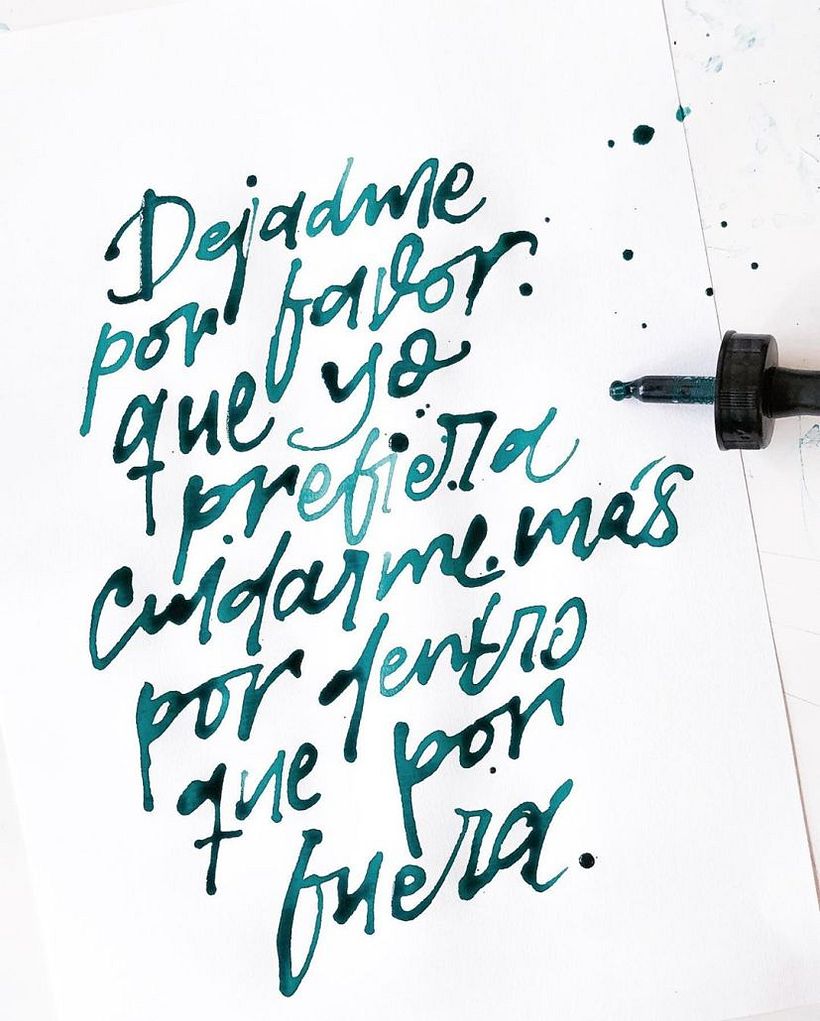 Dejadme
por favor.
que yo
prefiera
cuidarme más
por dentro
que por
fuera.